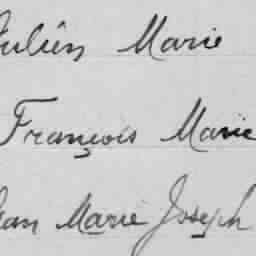 Julien Marie
François Marie
Jean Marie Joseph